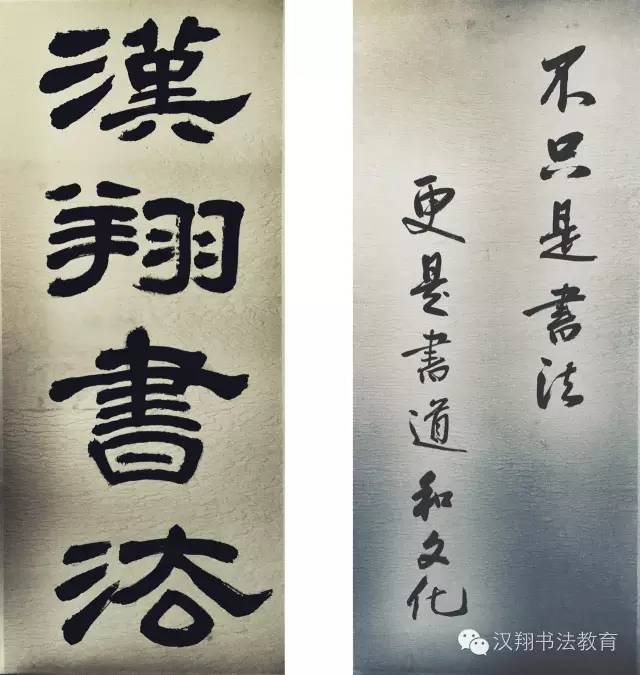 漢翔書法
不只是書法
更是書道和文化
汉翔书法教育